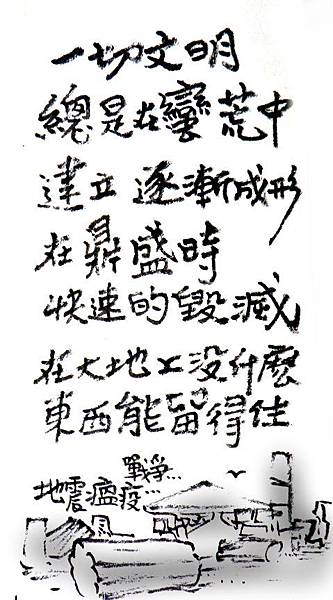 一切文明
總是在蠻荒中
建立 逐漸成形
在鼎盛時
快速的毀滅
在大地上沒什麼
東西能留得住
戰爭...
地震瘟疫...